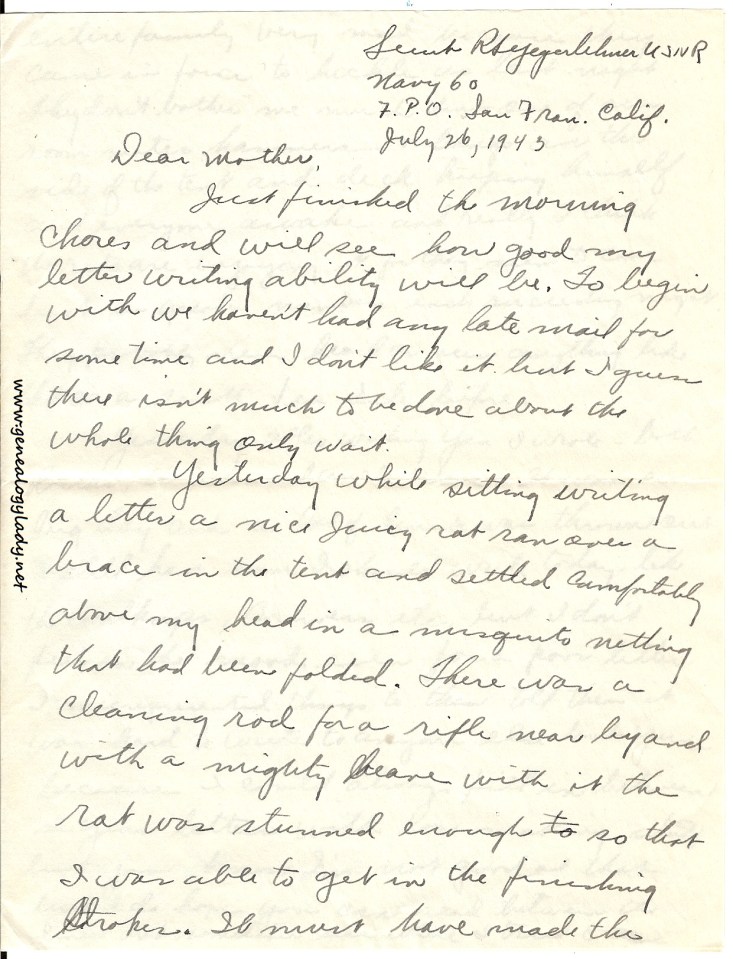 Lieut R H Yegerlehner USNR
Navy 60
F.P.O. San Fran. Calif.
July 26, 1943
Dear Mother,
Just finished the morning
chores and will see how good my
letter writing ability will be. To begin
with we haven't had any late mail for
some time and I don't like it but I guess
there isn't much to be done about the
whole thing only wait.
Yesterday while sitting writing
a letter a nice juicy rat ran over a
brace in the tent and settled comfortably
above my head in a mosquito netting
that had been folded. There was a
cleaning rod for a rifle near by and
with a mighty heave with it the
rat was stunned enough to so that
I was able to get in the finishing
strokes. It must have made the
www.genealogylady.net